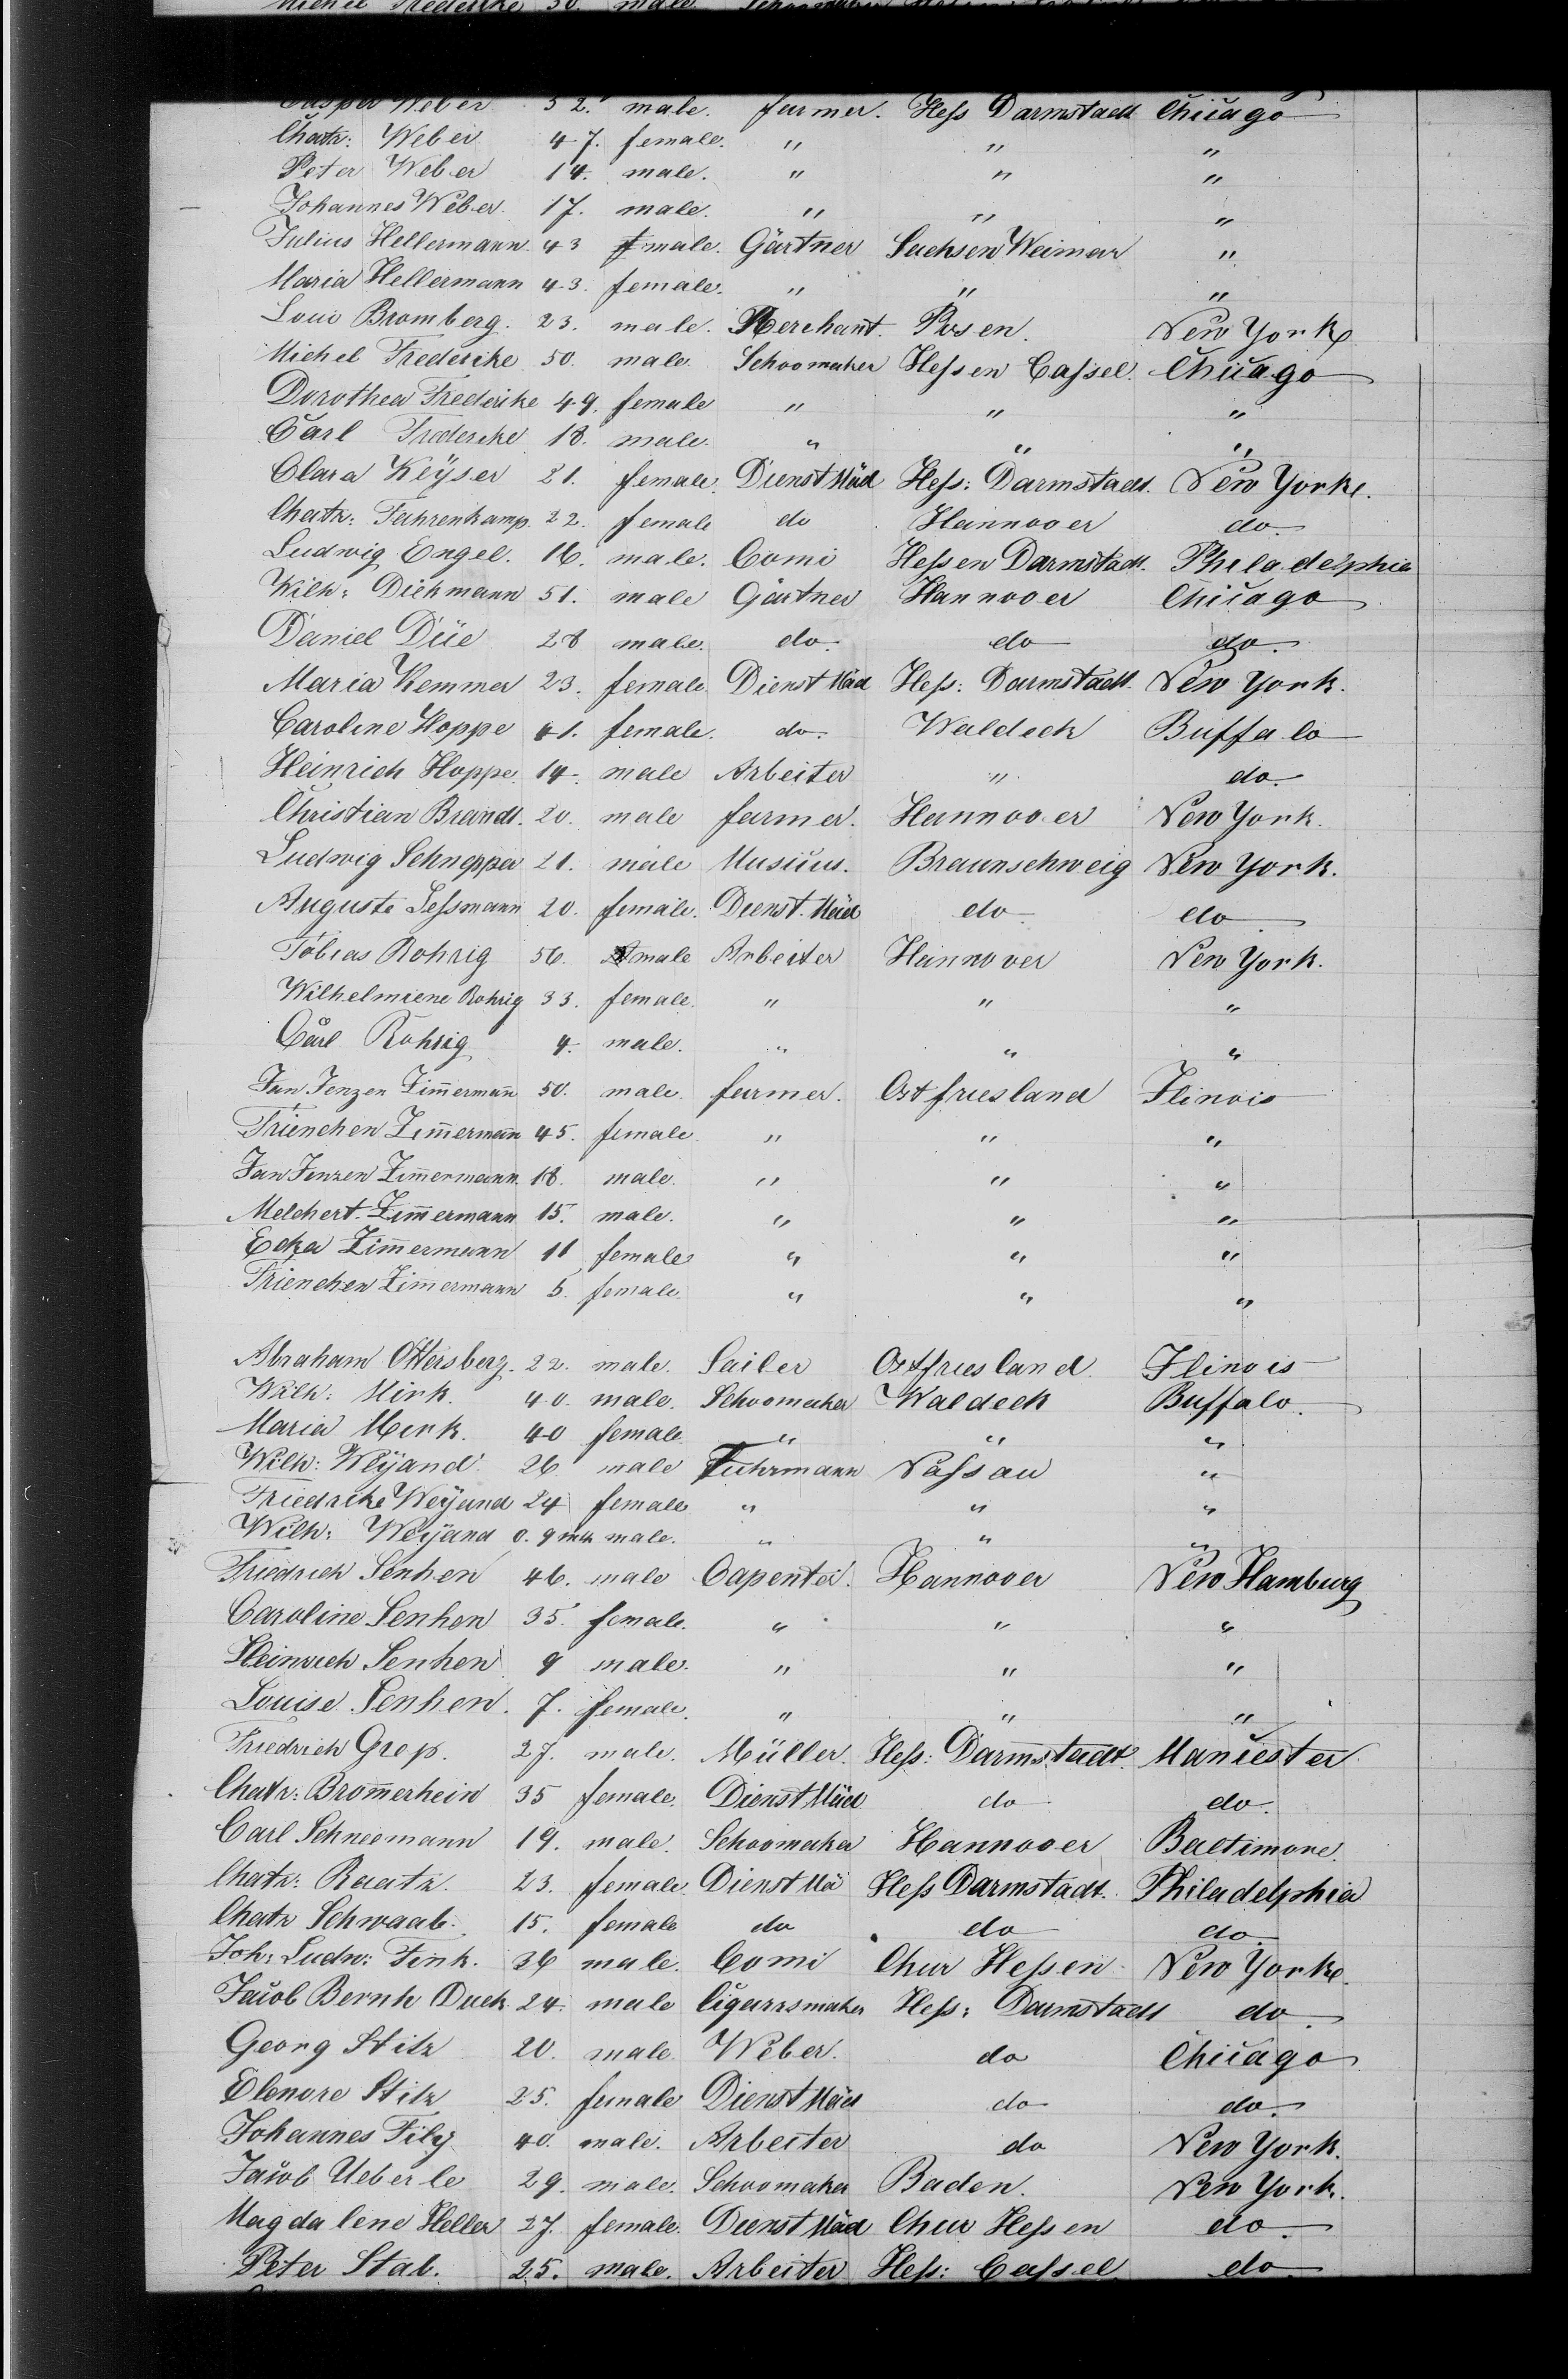 Michel Frederike 50. male
Weber 52. male. farmer. Hess Darmstadt Chicago
Chatr: Weber 47. female. " " "
Peter Weber 14. male. " " "
Johannes Weber. 17. male. " " "
Julius Hellermann. 43 male. Gärtner Sachsen Weimar "
Maria Hellermann 43. female. " " "
Loui Bromberg. 23. male. Merchant. Posen. New York
Michel Frederike 50. male. Schoomaker Hessen Cassel. Chicago
Dorothea Frederike 49. female " " "
Carl Frederike 18. male. " " "
Clara Keÿser 21. female. Dienst Mäd Hess: Darmstadt. New York.
Chatr: Fahrenkamp. 22. female do Hannover do.
Ludwig Engel. 16. male. Comi Hessen Darmstadt. Philadelphia
Wilh: Diekmann 51. male Gärtner Hannover Chicago
Daniel Düe 28 male. do. do do.
Maria Kemmer 23. female. Dienst Mäd Hess: Darmstadt. New York.
Caroline Hoppe 41. female. do. Waldeck Buffalo
Heinrich Hoppe. 14. male Arbeiter " do.
Christian Brandt. 20. male farmer. Hannover New York.
Ludwig Schnepper 21. male Musicus. Braunschweig New York.
Auguste Lessmann 20. female. Dienst. Mäd do. do.
Tobias Rohrig 56. male Arbeiter Hannover New York.
Wilhelmiene Rohrig 33. female. " " "
Carl Rohrig 4. male. " " "
Jan Jenzen Zimermann 50. male. farmer. Ostfriesland Ilinois
Trienchen Zimermann 45. female. " " "
Jan Jenzen Zimermann. 18. male. " " "
Melchert. Zimermann 15. male. " " "
Ecka Zimermann 11 female " " "
Trienchen Zimermann 5. female. " " "
Abraham Ottersberg. 22. male. Sailer Ostfriesland Ilinois
Wilh: Mirk. 40. male. Schoomaker Waldeck Buffalo.
Maria Merk. 40 female. " " "
Wilh: Weÿand 26. male Fuhrmann Nassau "
Friedrike Weÿand 24 female " " "
Wilh: Weÿand 0. 9 mth male. " " "
Friedrich Senhen 46. male Capenter. Hannover New Hamburg
Caroline Senhen 35. female. " " "
Heinrich Senhen 9 male. " " "
Louise Senhen. 7. female. " " "
Friedrich Grop. 27. male. Müller. Hess: Darmstadt. Mancester
Chatr: Bromerhein 35 female. Dienst Mäd do do.
Carl Schneemann 19. male. Schoomaker Hannover Baltimore.
Chatr: Raatz. 23. female. Dienst Mä Hess Darmstadt. Philadelphia
Chatr Schwaab. 15. female do do do.
Joh: Ludw: Fink. 36 male. Comi Chur Hessen. New York.
Jacob Bernh Duck. 24. male Cigarrsmaker Hess: Darmstadt do.
Georg Stitz 20. male. Weber. do Chicago
Elenore Stitz 25. female Dienst Mäd do do.
Johannes Filg 40. male. Arbeiter do New York.
Jacob Ueberle 29. male. Schoomaker Baden. New York.
Magdalene Heller 27. female. Dienst Mäd Chur Hessen do.
Peter Stab. 25. male. Arbeiter Hess: Cassel do.